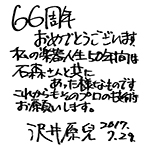 66周年
おめでとうございます
私の楽器人生50年間は
石森さんと共に
あった様なものです
これからもそのプロの技術
お願いします。
沢井原兒 2017.
7.29.